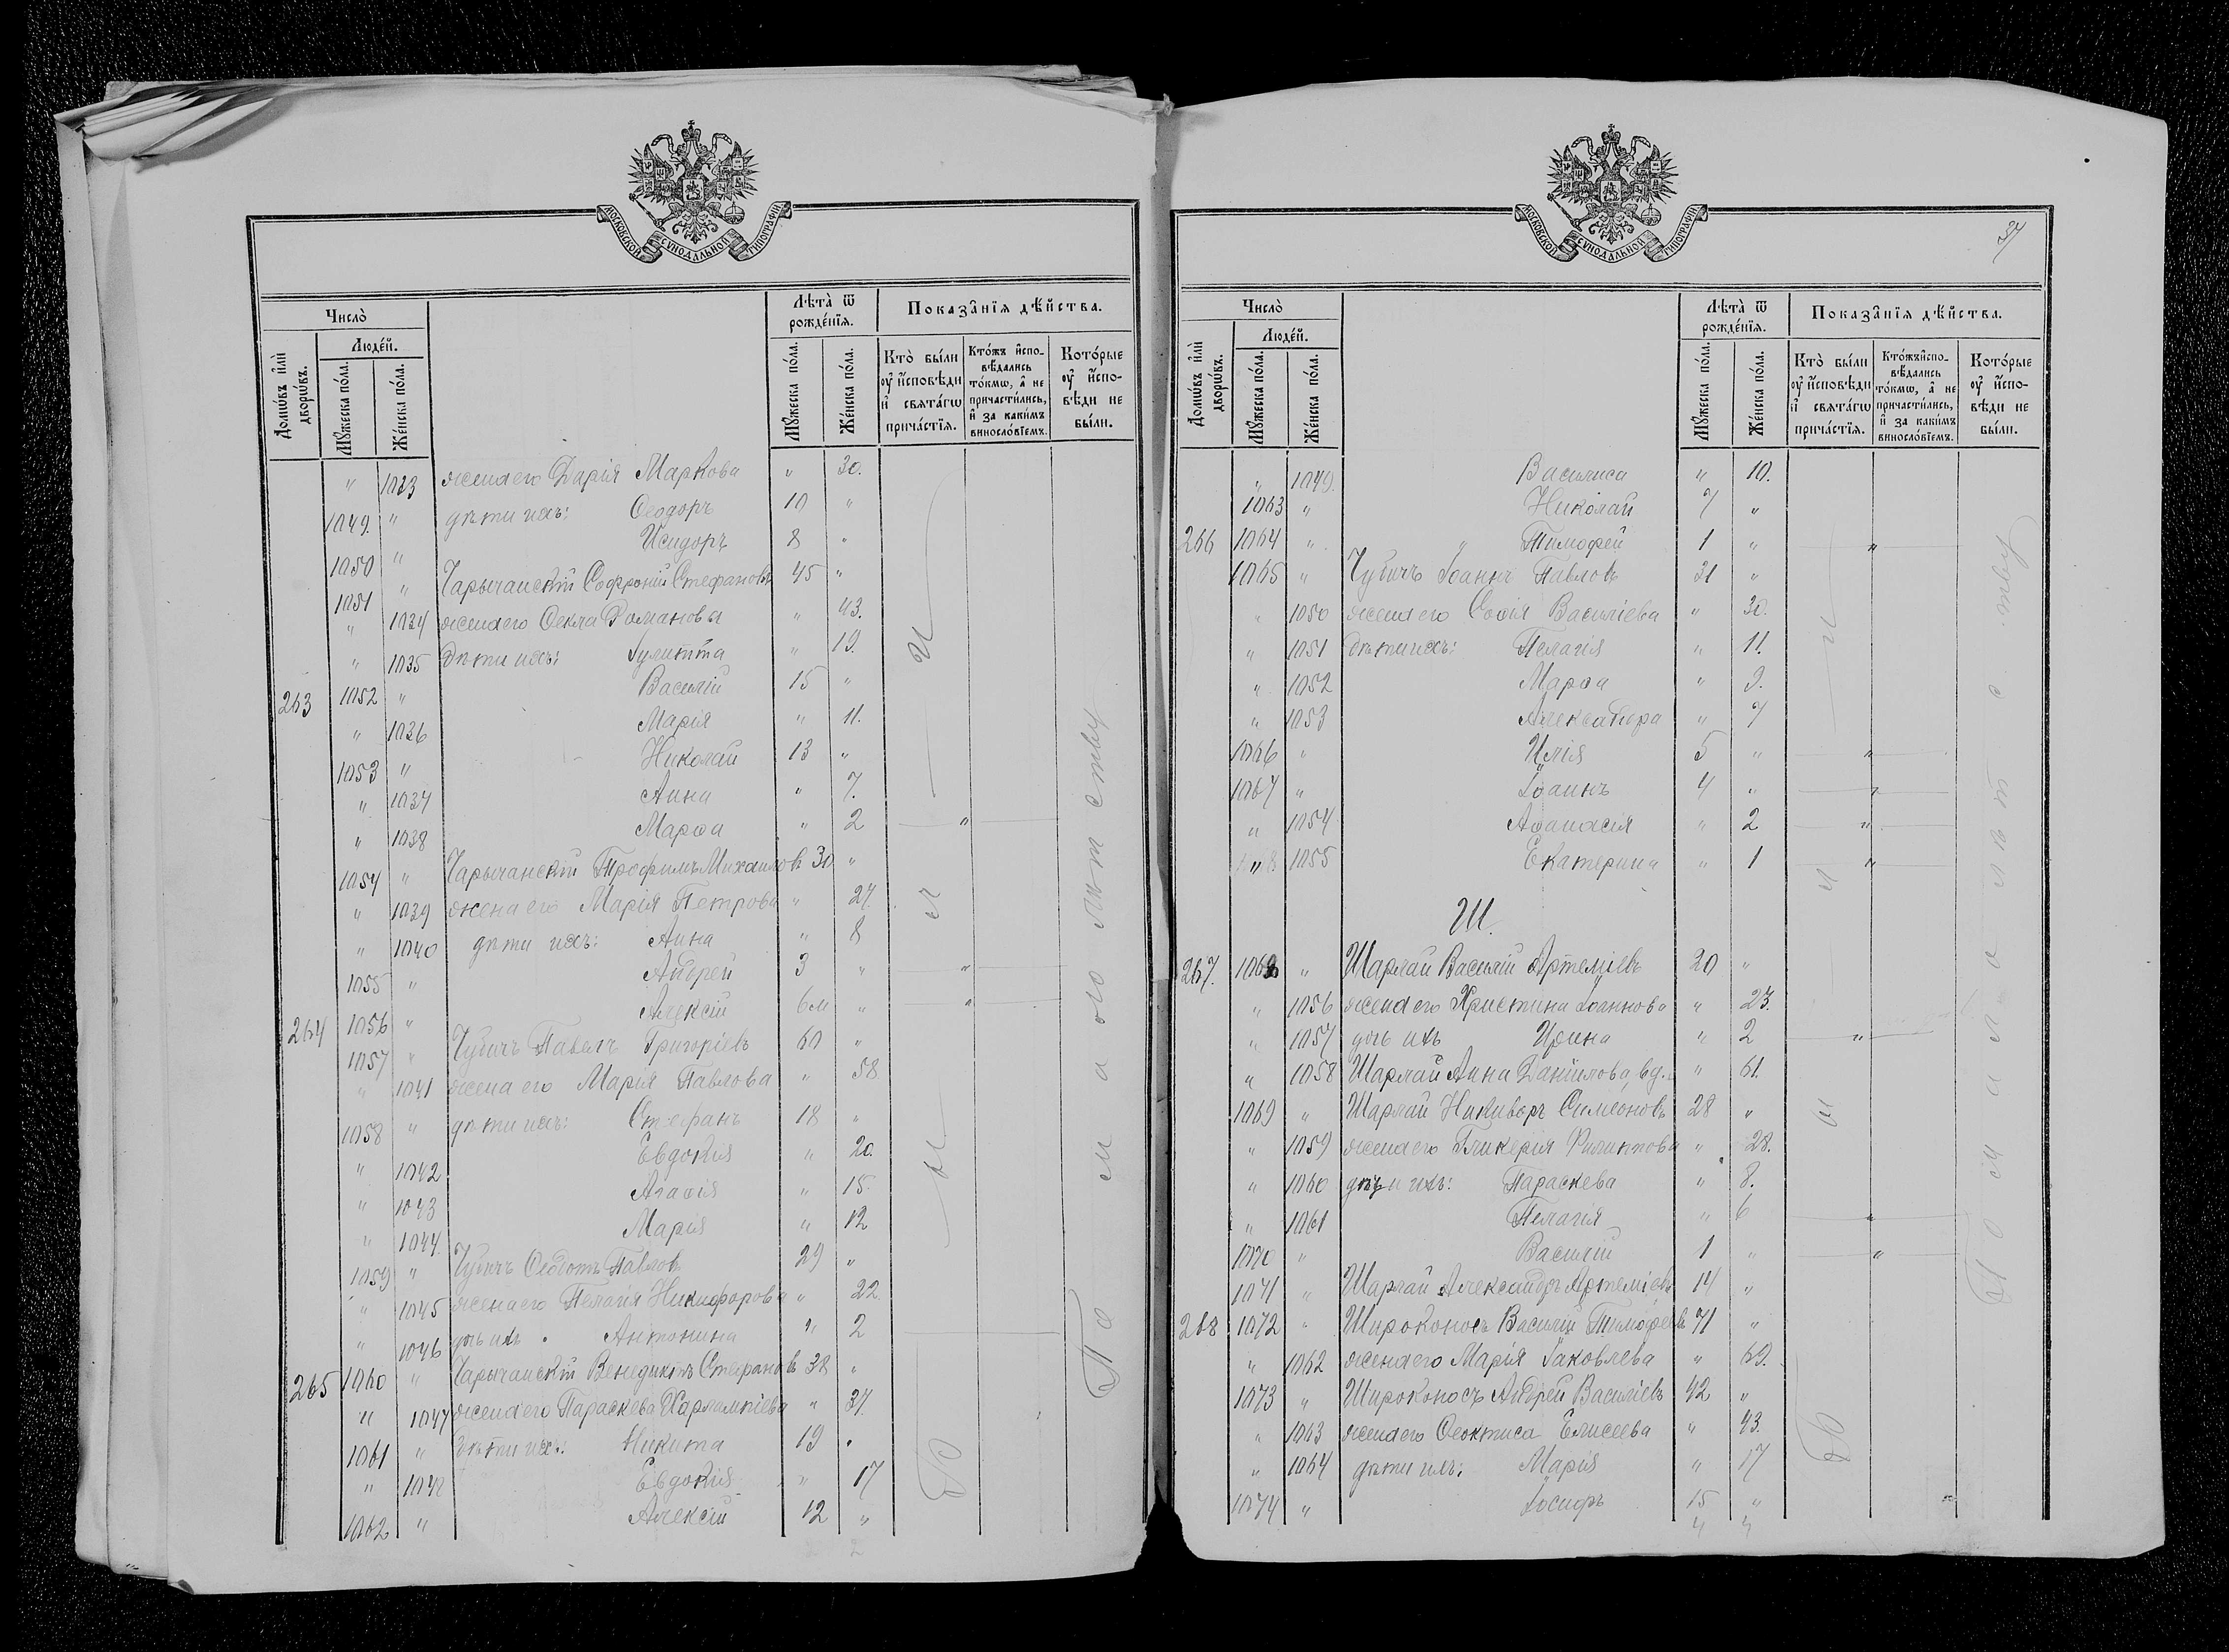 МОСКОВСКОЙ СУНОДАЛЬНОЙ ТИПОГРАФІИ
Число̀
Домѡ́въ и҆лѝ дворѡ́въ.
Люде́й.
Мꙋ́жеска по́ла.
Же́нска по́ла.
Лѣ́та ѿ рожде́нїѧ.
Мꙋ́жеска по́ла.
Же́нска по́ла.
Показа̑нїѧ дѣ́йства.
Кто̀ бы́ли ᲂу҆ и҆сповѣ́ди и҆ свѧта́гѡ прича́стїѧ.
Кто́жъ и҆сповѣ́дались то́кмѡ, а҆ не причасти́лись, и҆ за каки́мъ винословїемъ.
Кото́рые ᲂу҆ и҆сповѣ́ди не бы́ли.
" 1033 жена его Дарія Маркова " 30.
1049. " дѣти ихъ: Ѳеодоръ 10 "
1050 " Исидоръ 8 "
1051 " Чарычанскій Софроній Стефановъ 45 "
" 1034 жена его Ѳекла Романова " 43.
" 1035 дѣти ихъ: Іулитта " 19.
263 1052 " Василій 15 "
" 1036 Марія " 11.
1053 " Николай 13 "
" 1037 Анна " 7.
" 1038 Марѳа " 2 "
1054 " Чарычанскій Трофимъ Михаиловъ 30 "
" 1039 жена его Марія Петрова " 27.
" 1040 дѣти ихъ: Анна " 8
1055 " Андрей 3 " "
264 1056 " Алексій 6м " "
1057 " Чубичъ Павелъ Григоріевъ 60 "
" 1041 жена его Марія Павлова " 58
1058 " дѣти ихъ: Стефанъ 18 "
" 1042 Евдокія " 20.
" 1043 Агаѳія " 15.
" 1044 Марія " 12
1059 " Чубичъ Ѳеодотъ Павловъ 29 "
" 1045 жена его Пелагія Никифорова " 22
" 1046 дочь ихъ Антонина " 2
265 1060 " Чарычанскій Венедиктъ Стефановъ 38 "
" 1047 жена его Параскева Харлампіева " 37.
1061 " дѣти ихъ: Никита 19 "
" 1048 Евдокія " 17
1062 " Алексій 12 "
По малолѣтству
МОСКОВСКОЙ СУНОДАЛЬНОЙ ТИПОГРАФІИ
37
Число̀
Домѡ́въ и҆лѝ дворѡ́въ.
Люде́й.
Мꙋ́жеска по́ла.
Же́нска по́ла.
Лѣ́та ѿ рожде́нїѧ.
Мꙋ́жеска по́ла.
Же́нска по́ла.
Показа̑нїѧ дѣ́йства.
Кто̀ бы́ли ᲂу҆ и҆сповѣ́ди и҆ свѧта́гѡ прича́стїѧ.
Кто́жъ и҆сповѣ́дались то́кмѡ, а҆ не причасти́лись, и҆ за каки́мъ винословїемъ.
Кото́рые ᲂу҆ и҆сповѣ́ди не бы́ли.
" 1049. Василиса " 10.
1063 " Николай 7 "
266 1064 " Тимофей 1 " "
1065 " Чубичъ Іоаннъ Павловъ 31 "
" 1050 жена его Софія Василіева " 30.
" 1051 дѣти ихъ: Пелагія " 11.
" 1052 Марѳа " 9.
" 1053 Александра " 7
1066 " Илія 5 " "
1067 " Іоаннъ 4 " "
" 1054 Аѳанасія " 2 "
" 1055 Екатерина " 1 "
Ш.
267. 1068 " Шарлай Василій Артеміевъ 20 "
" 1056 жена его Христина Іоаннова " 23.
" 1057 дочь ихъ Ирина " 2 "
" 1058 Шарлай Анна Даніилова, вд. " 61.
1069 " Шарлай Никиворъ Симеоновъ 28 "
" 1059 жена его Гликерія Филиппова " 28.
" 1060 дѣти ихъ: Параскева " 8.
" 1061 Пелагія " 6 "
1070 " Василій 1 " "
1071 " Шарлай Александръ Артеміевъ 14 "
268 1072 " Широконосъ Василій Тимофеевъ 71 "
" 1062 жена его Марія Іаковлева " 69.
1073 " Широконосъ Андрей Василіевъ 42 "
" 1063 жена его Ѳеоктиса Елисеева " 43.
" 1064 дѣти ихъ: Марія " 17
1074 " Іосифъ 15 "
По малолѣтству